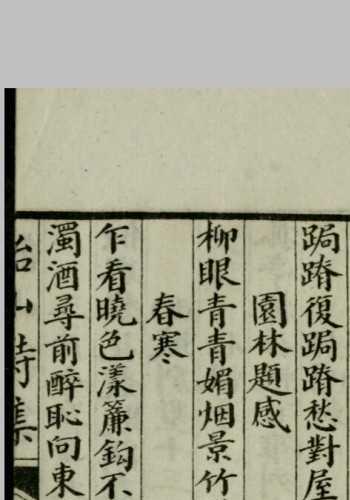 跼蹐復跼蹐愁對屋
園林題感
柳眼青青媚烟景竹
春寒
乍看曉色漾簾鈎不
濁酒尋前醉恥向東
山詩集